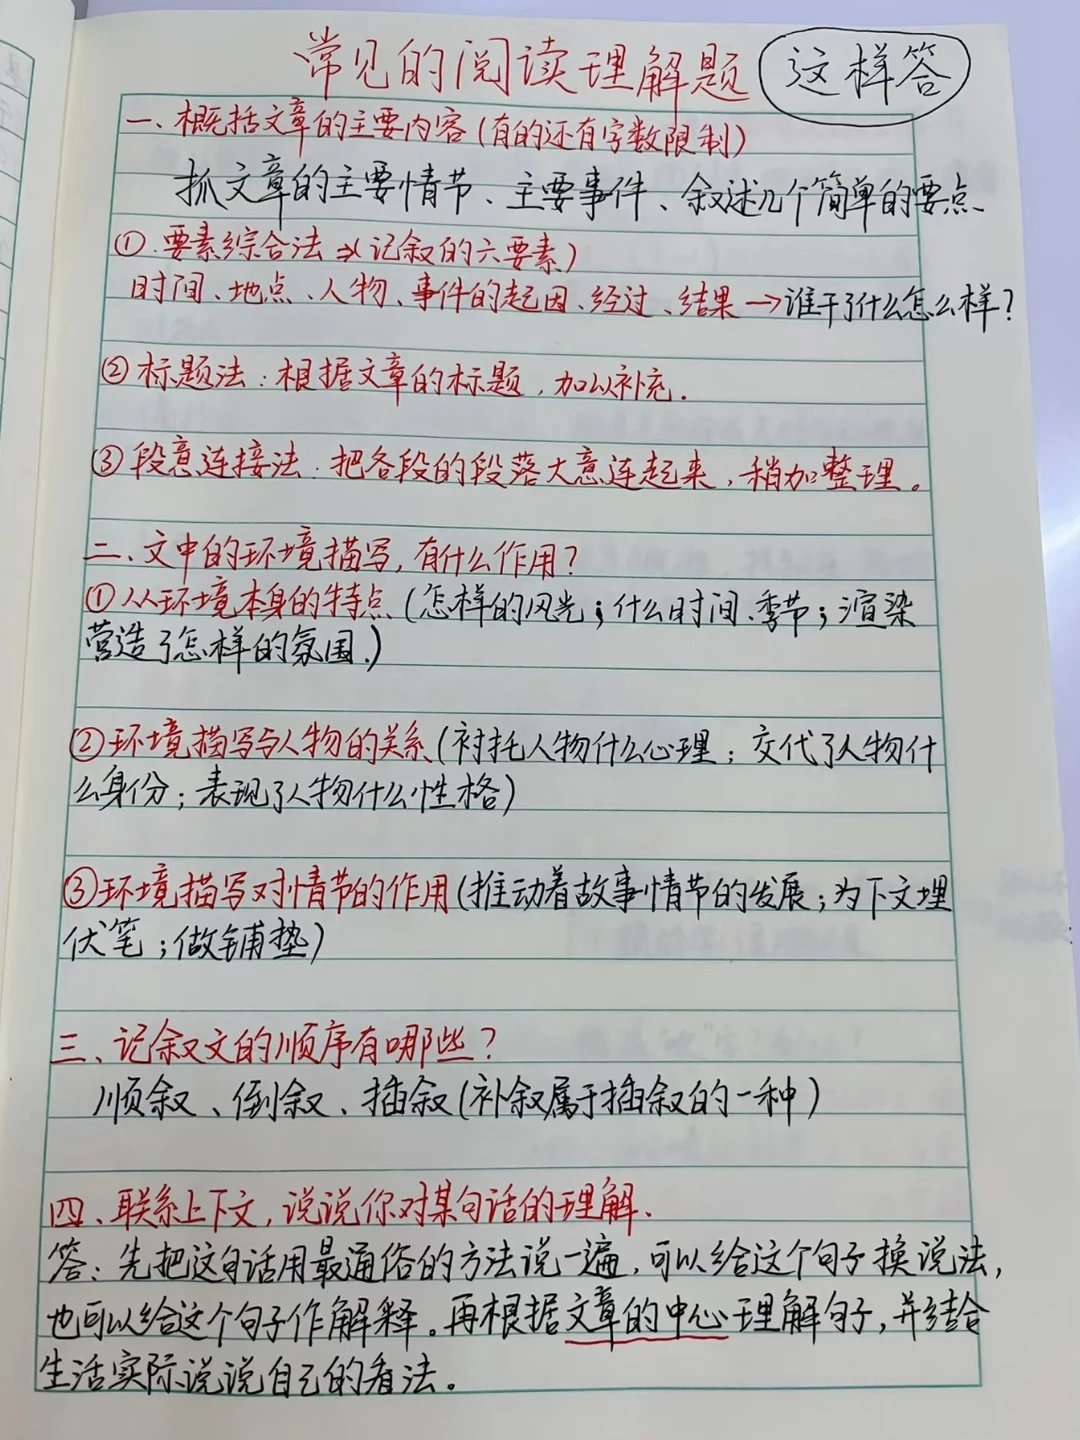 常见的阅读理解题 这样答
一、概括文章的主要内容(有的还有字数限制)
抓文章的主要情节、主要事件、叙述几个简单的要点、
①.要素综合法→(记叙的六要素)
时间、地点、人物、事件的起因、经过、结果→谁干了什么怎么样?
②标题法:根据文章的标题,加以补充.
③段意连接法:把各段的段落大意连起来,稍加整理。
二、文中的环境描写,有什么作用?
①从环境本身的特点(怎样的风光;什么时间、季节;渲染
营造了怎样的氛围.)
②环境描写与人物的关系(衬托人物什么心理;交代了人物什
么身份;表现了人物什么性格)
③环境描写对情节的作用(推动着故事情节的发展;为下文埋
伏笔;做铺垫)
三、记叙文的顺序有哪些?
顺叙、倒叙、插叙(补叙属于插叙的一种)
四、联系上下文,说说你对某句话的理解.
答:先把这句话用最通俗的方法说一遍,可以给这个句子换说法,
也可以给这个句子作解释。再根据文章的中心理解句子,并结合
生活实际说说自己的看法。